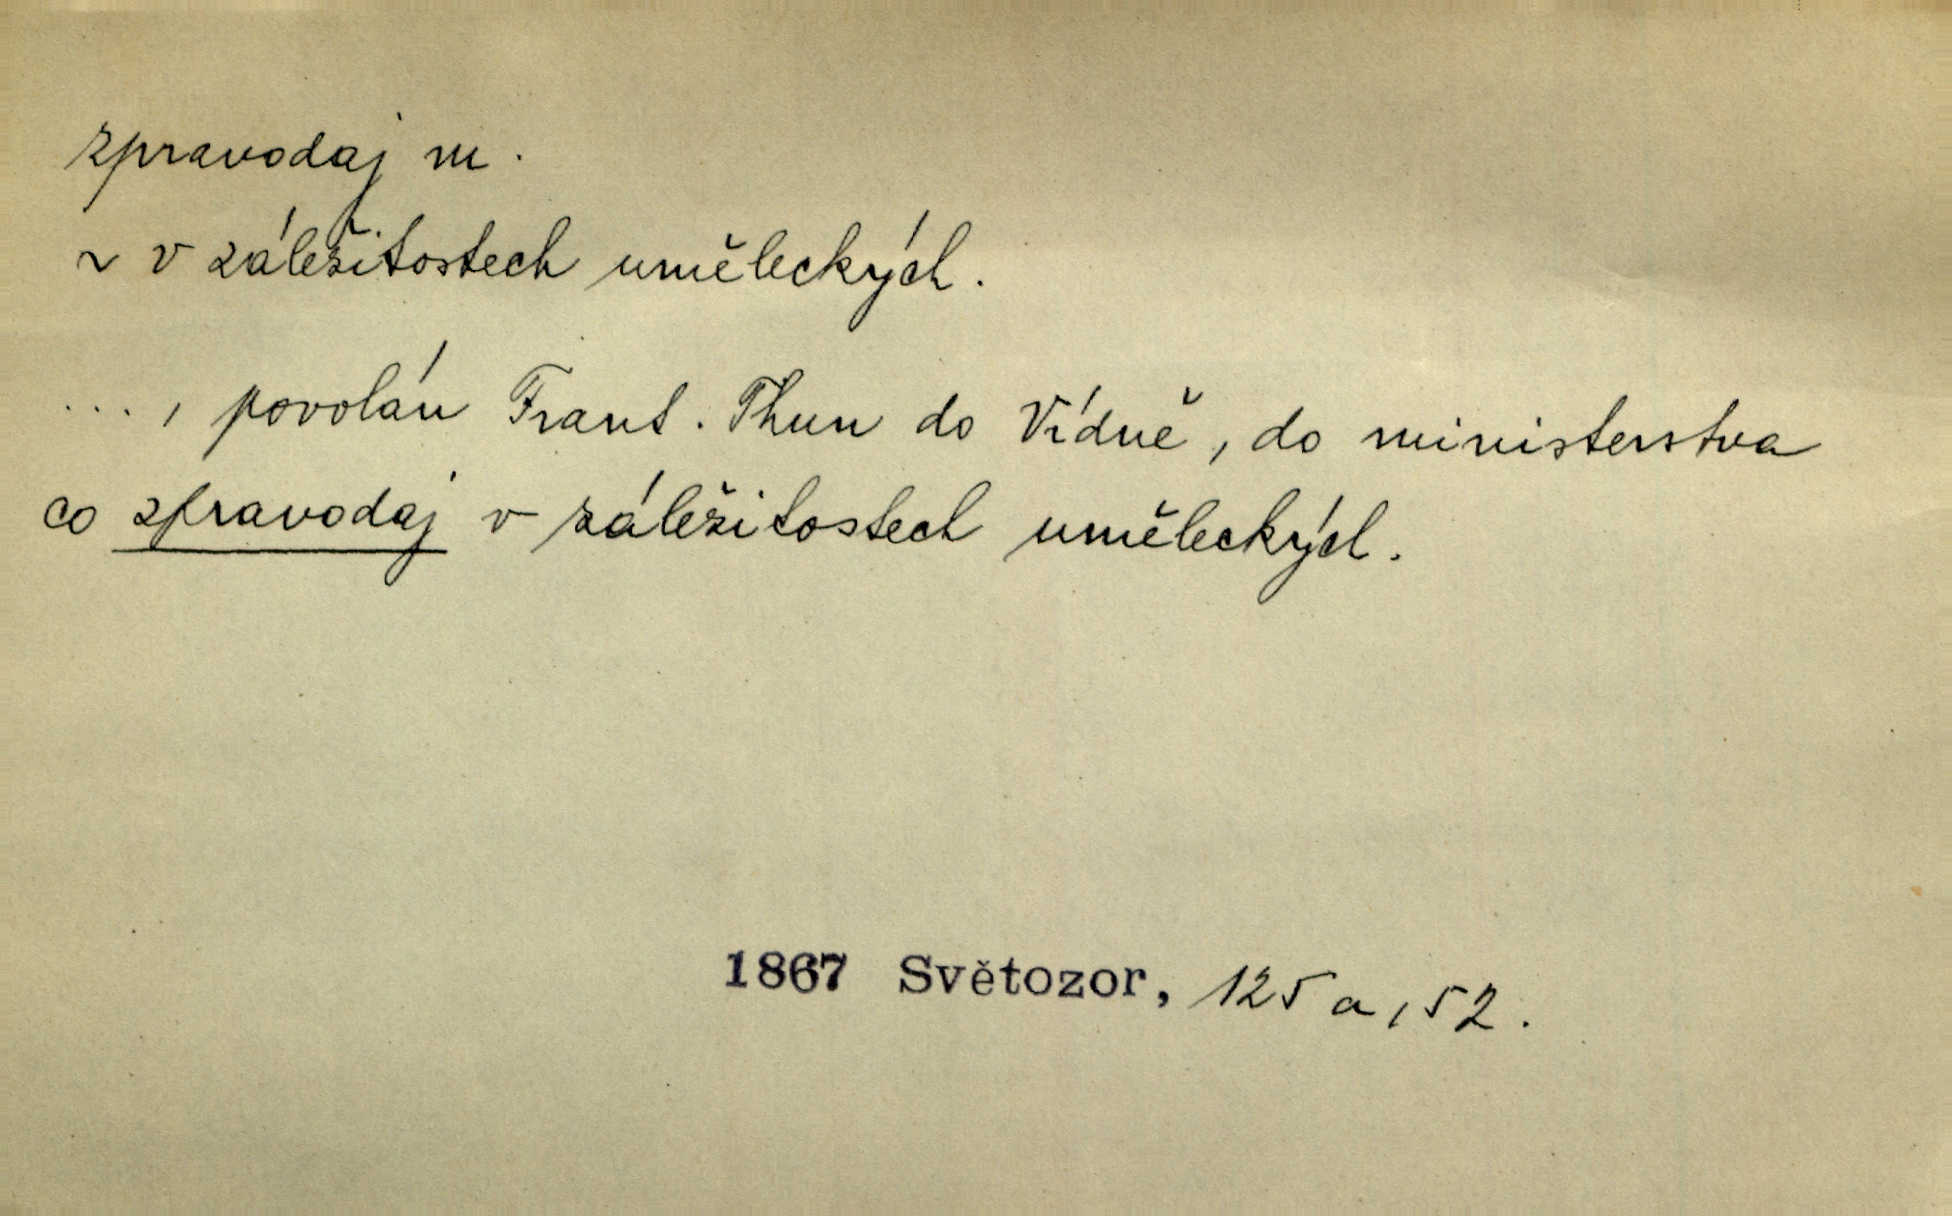 zpravodaj m.
~ v záležitostech uměleckých.
..., povolán Frant. Thun do Vídně, do ministerstva
co zpravodaj v záležitostech uměleckých.
1867 Světozor, 125 a, 52.